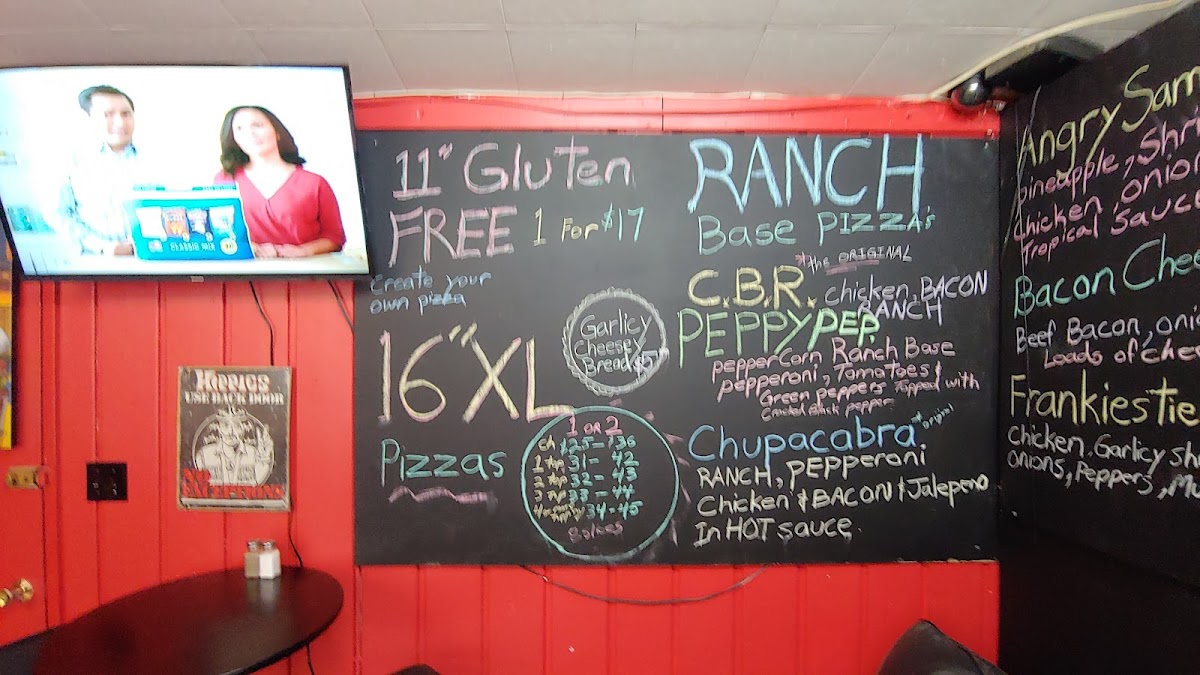 CLASSIC MIX
HIPPIES
USE BACK DOOR
NO
EXCEPTIONS
11" GluTen
FREE 1 For $17
Create your
own pizza
16" XL
Pizzas
Garlicy
Cheesey
Bread
1 OR 2
$25 - $36
1 Top 31 - 42
2 Top 32 - 43
3 Top 33 - 44
34 - 45
RANCH
Base PIZZA's
*the ORIGINAL
C.B.R. chicken, BACON
RANCH
PEPPYPEP.
pepperCorn Ranch Base
pepperoni, Tomatoes &
Green peppers Topped with
Cracked black pepper
*original
Chupacabra.
RANCH, PEPPeroni
Chicken & BACON & Jalepeno
In HOT sauce.
Angry Sam
pineapple, Shri
Chicken, onion
Tropical Sauce
Bacon Chee
Beef Bacon, onio
Loads of chee
Frankies Tie
Chicken, Garlicy sh
onions, Peppers,